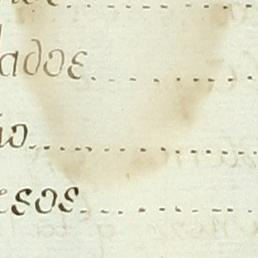 lados
io
esos